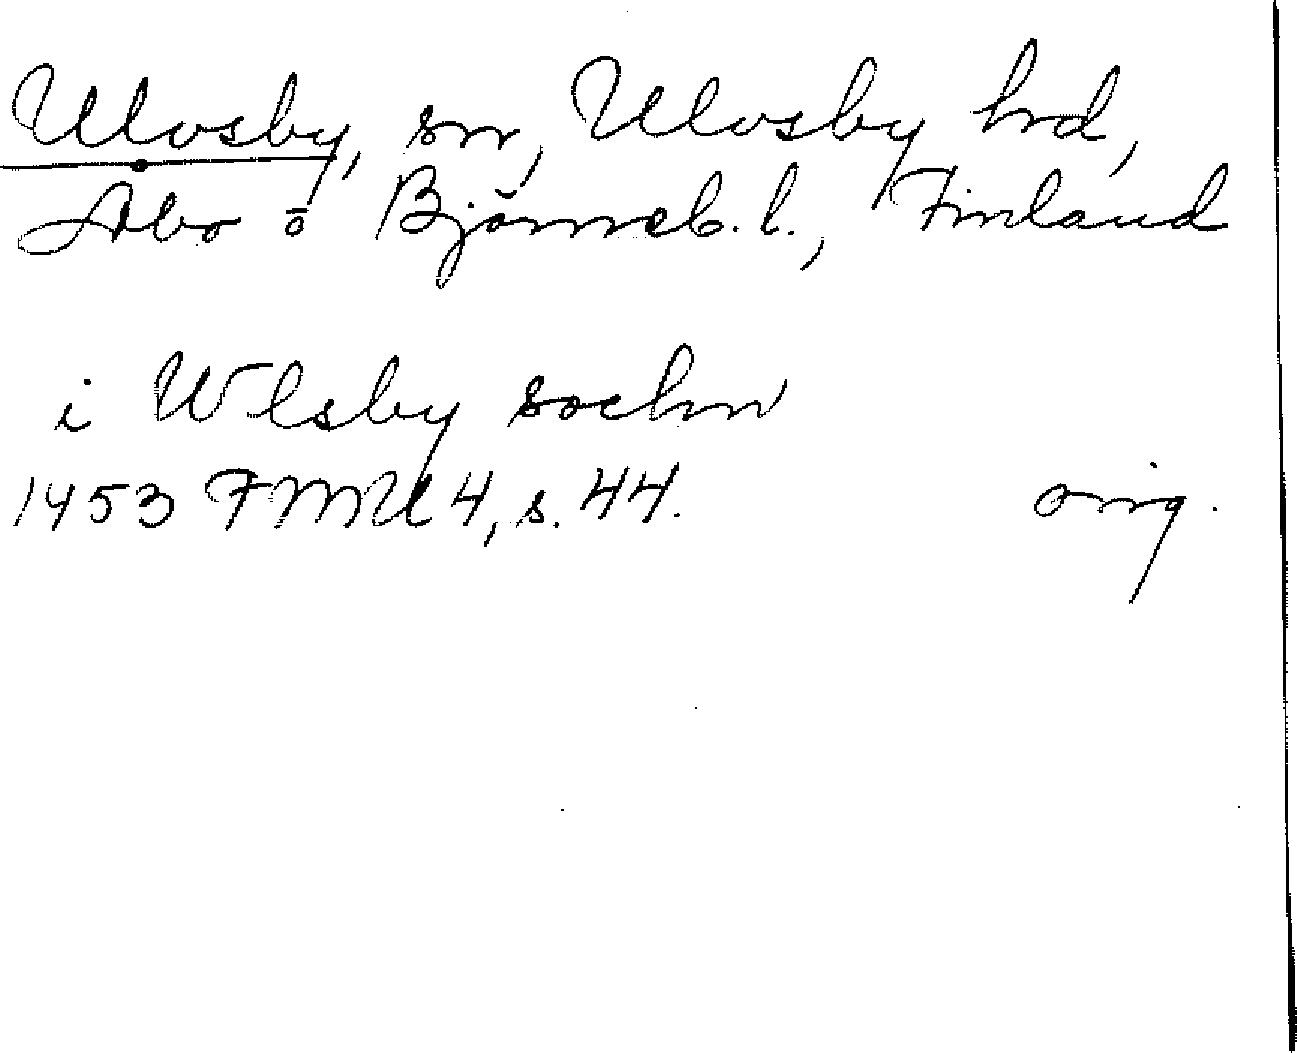 Ulvsby, sn, Ulvsby hd,
Åbo o Björneb. l., Finland
i Wlsby sochn
1453 FMU 4, s. 44. orig.